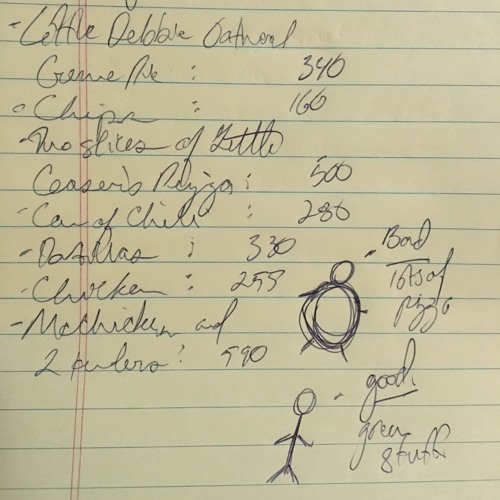 - Little Debbie Oatmeal
Creme Pie : 340
- Chips : 160
- Two slices of Little
Ceaser's Pizza : 500
- Can of Chili : 280
: 330
- Chicken :
- McChicken and
2 : 590
- Bad
lots of
pizza
- good
green
stuff